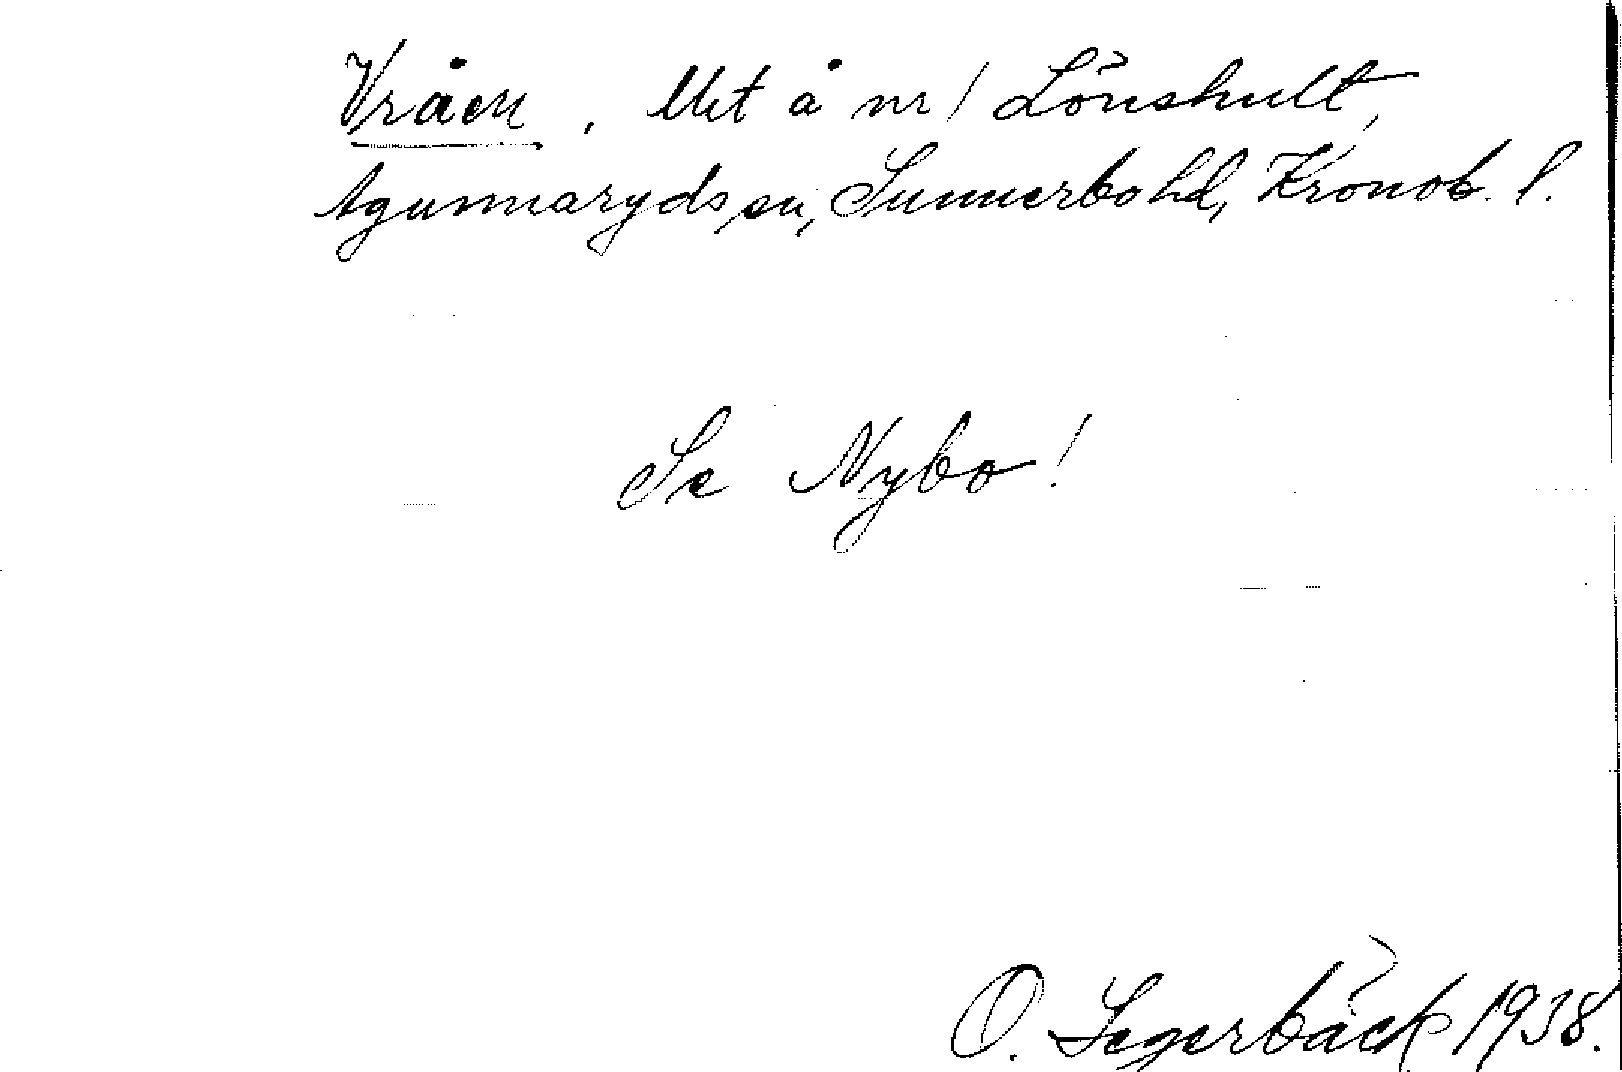 Vråen, Utet å nr 1 Lönshult,
Agunnaryds sn, Sunnerbo hd, Kronob. l.
Se Nybo!
O. Segerbäck 1938.